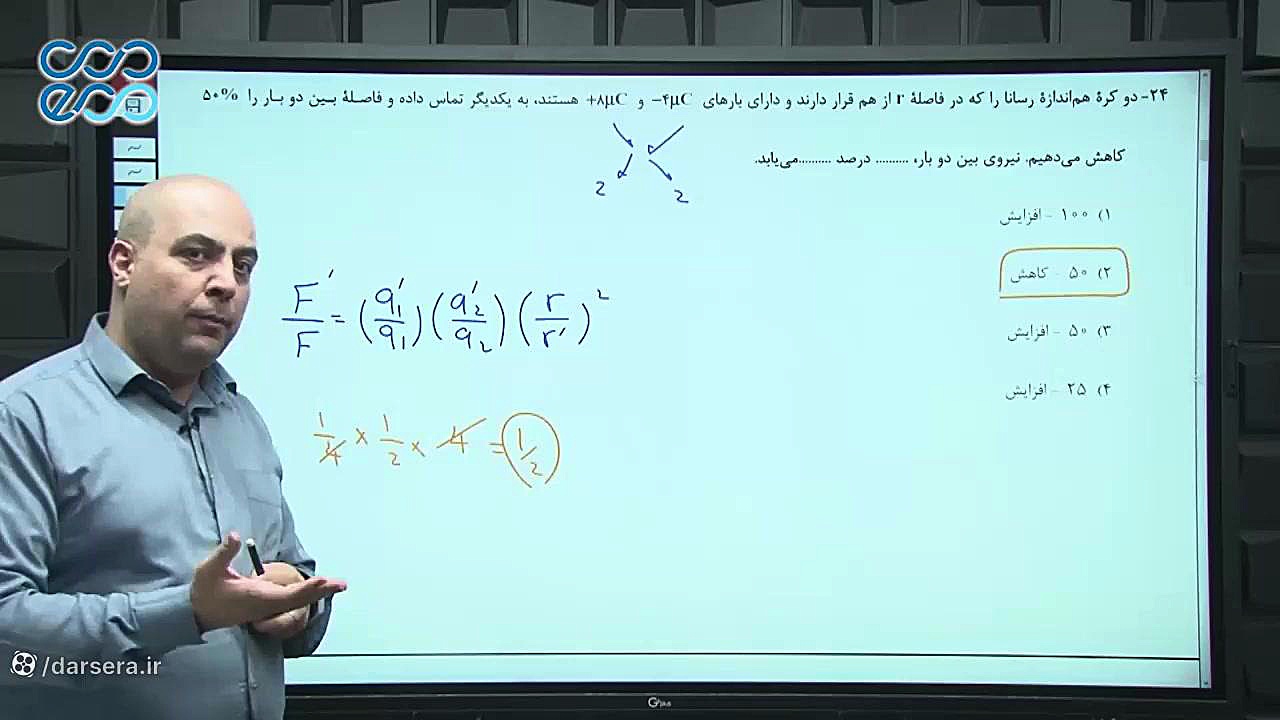 ۲۴- دو کرهٔ هم‌اندازهٔ رسانا را که در فاصلهٔ r از هم قرار دارند و دارای بارهای −۴μC و +۸μC هستند، به یکدیگر تماس داده و فاصلهٔ بین دو بار را ۵۰%
کاهش می‌دهیم. نیروی بین دو بار، .......... درصد ..........می‌یابد.
2 2
۱) ۱۰۰ - افزایش
۲) ۵۰ - کاهش
۳) ۵۰ - افزایش
۴) ۲۵ - افزایش
F'/F = (q'₁/q₁) (q'₂/q₂) (r/r')²
1/4 × 1/2 × 4 = 1/2
/darsera.ir